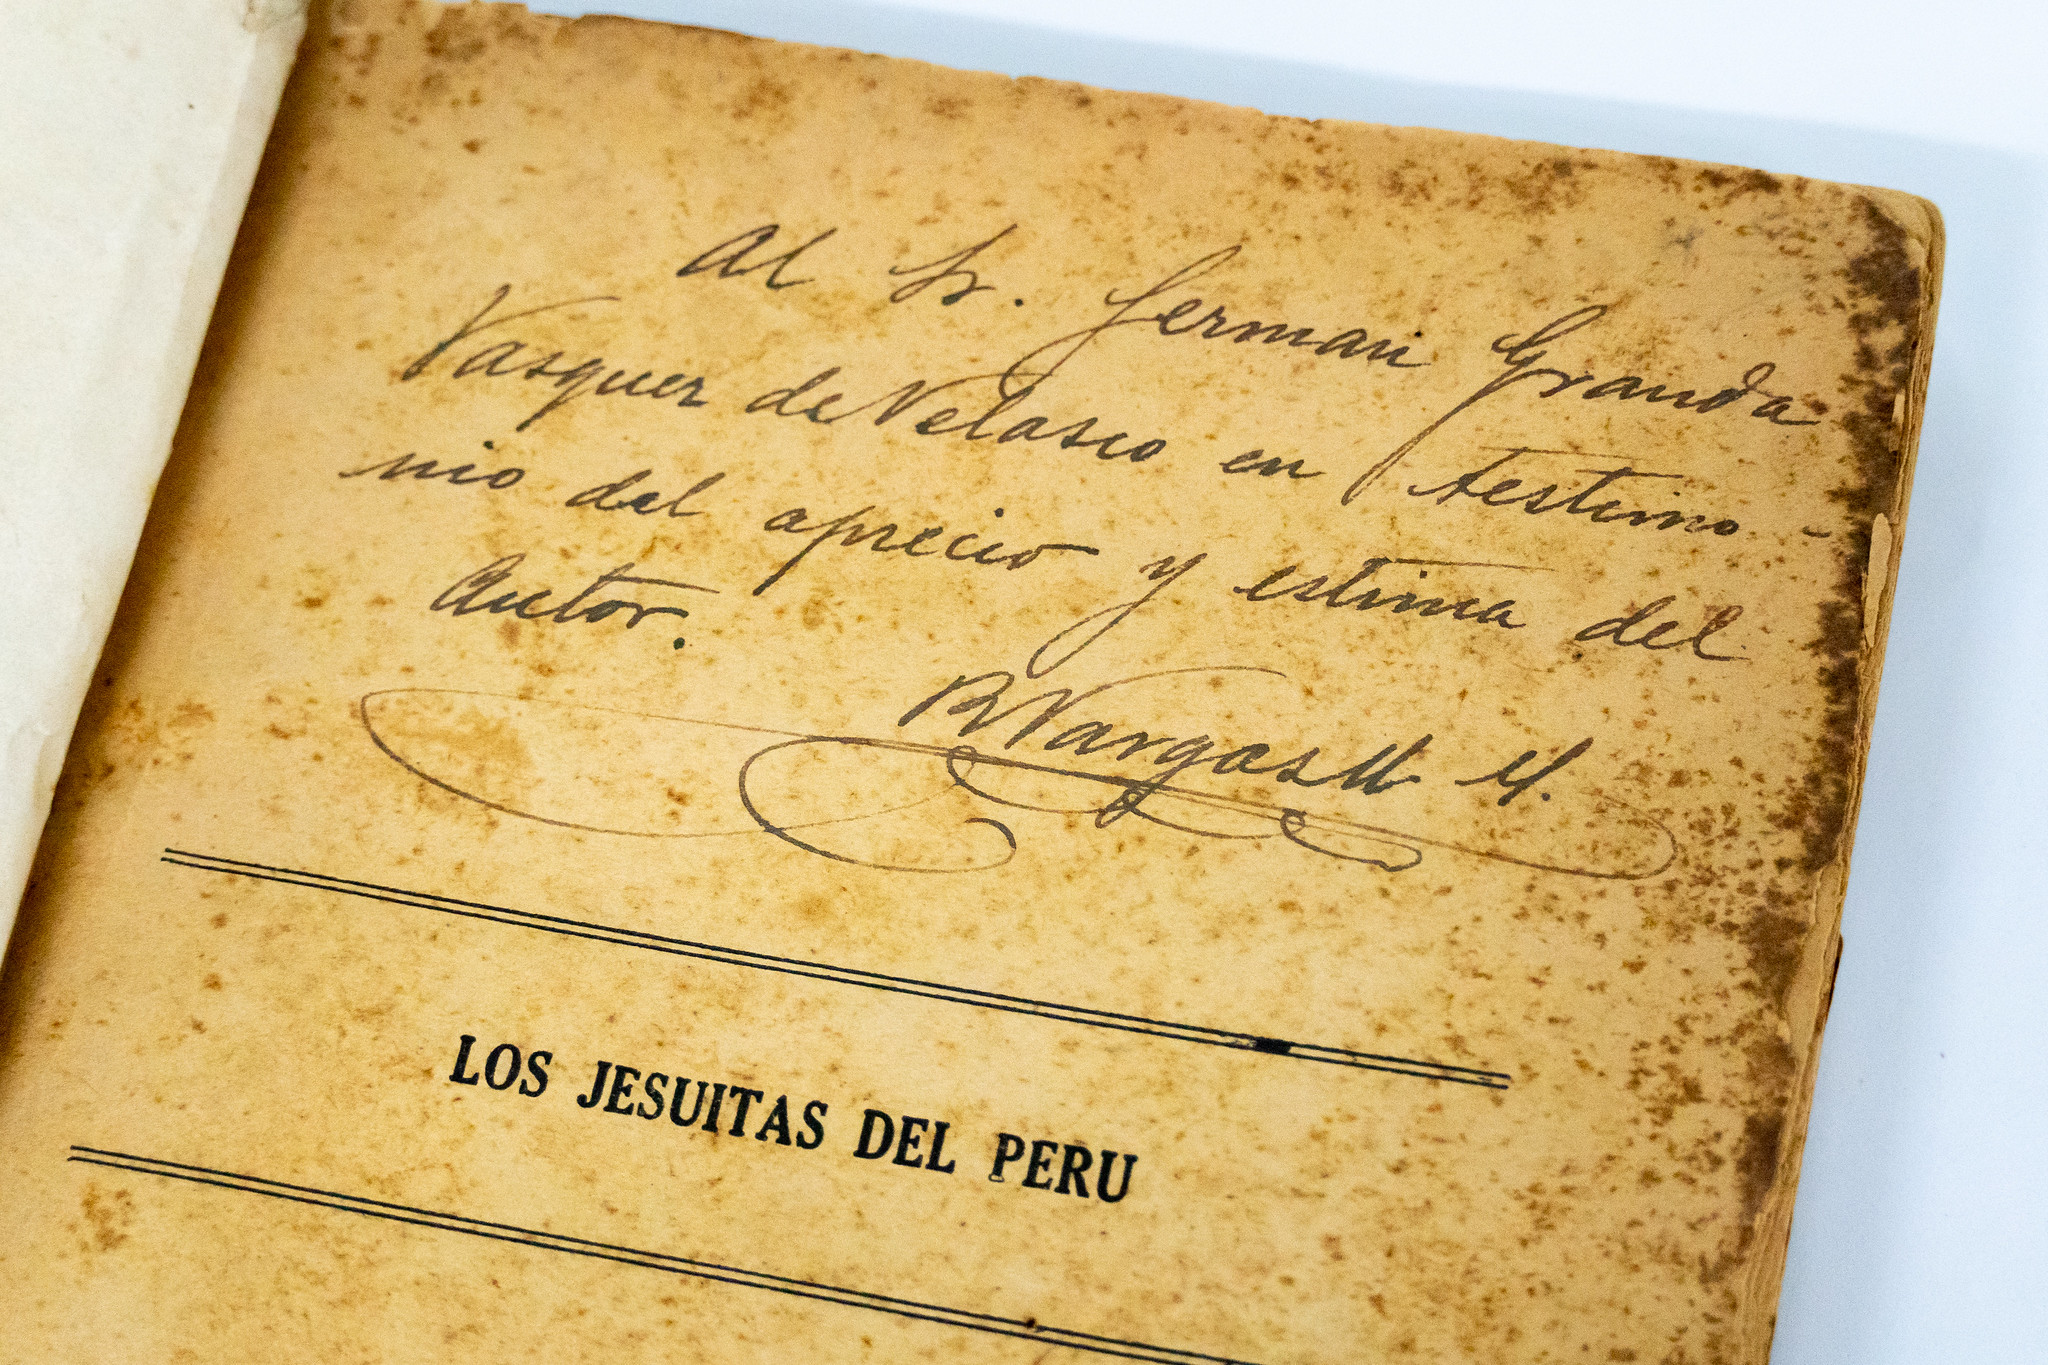 Al Sr. German Granda
Vasquez de Velasco en testimo-
nio del aprecio y estima del
Autor.
R Vargas U
LOS JESUITAS DEL PERU